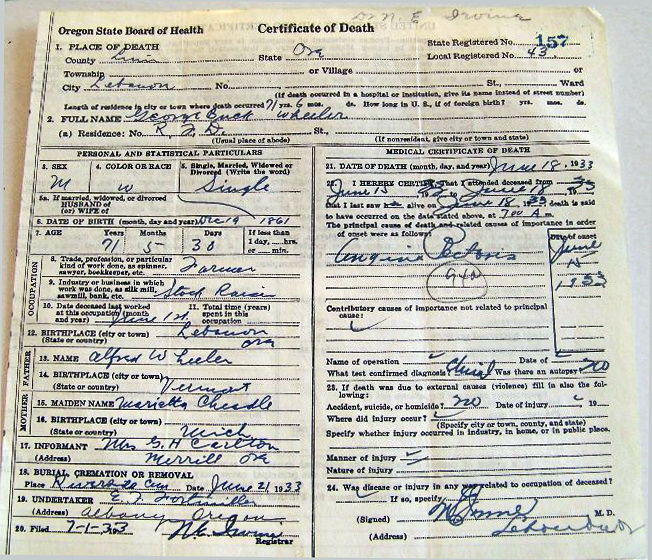 Dr N. E. Irvine
Oregon State Board of Health Certificate of Death
State Registered No. 157
Local Registered No. 43
1. PLACE OF DEATH
County Linn State Ore
Township or Village or
City Lebanon No. St., Ward
(If death occurred in a hospital or institution, give its name instead of street number)
Length of residence in city or town where death occurred 71 yrs. 6 mos. ds. How long in U. S., if of foreign birth? yrs. mos. ds.
2. FULL NAME George Buck Wheeler
(a) Residence: No. R. F. D. St.,
(Usual place of abode) (If nonresident, give city or town and state)
PERSONAL AND STATISTICAL PARTICULARS
3. SEX 4. COLOR OR RACE 5. Single, Married, Widowed or Divorced (Write the word)
M W Single
5a. If married, widowed, or divorced
HUSBAND of
(or) WIFE of
6. DATE OF BIRTH (month, day and year) Dec 19 1861
7. AGE Years Months Days If less than
71 5 30 1 day,....hrs.
or.....min.
OCCUPATION
8. Trade, profession, or particular
kind of work done, as spinner,
sawyer, bookkeeper, etc. Farmer
9. Industry or business in which
work was done, as silk mill,
sawmill, bank, etc. Stock Raiser
10. Date deceased last worked 11. Total time (years)
at this occupation (month spent in this
and year) June 1st. occupation
12. BIRTHPLACE (city or town) Lebanon
(State or country) Ore
FATHER
13. NAME Alfred Wheeler
14. BIRTHPLACE (city or town)
(State or country) Vermont
MOTHER
15. MAIDEN NAME Marietta Cheadle
16. BIRTHPLACE (city or town)
(State or country) Mich
17. INFORMANT Mrs G. H Carleton
(Address) Merrill Ore
18. BURIAL, CREMATION OR REMOVAL
Place Riverside Cem Date June 21, 1933
19. UNDERTAKER E. T. Fortmiller
(Address) Albany Oregon
20. Filed 7-1-33 N E Irvine
Registrar
MEDICAL CERTIFICATE OF DEATH
21. DATE OF DEATH (month, day, and year) June 18, 1933
22. I HEREBY CERTIFY, That I attended deceased from
June 15 1933 to June 18 1933
that I last saw h alive on June 18 1933 death is said
to have occurred on the date stated above, at 7:00 A m.
The principal cause of death and related causes of importance in order
of onset were as follows: Date of onset
Angina Pectoris June
15
1933
940
Contributory causes of importance not related to principal
cause:
Name of operation Date of
What test confirmed diagnosis? Clinical Was there an autopsy? no
23. If death was due to external causes (violence) fill in also the following:
Accident, suicide, or homicide? no Date of injury 19
Where did injury occur?
(Specify city or town, county, and state)
Specify whether injury occurred in industry, in home, or in public place.
Manner of injury
Nature of injury
24. Was disease or injury in any way related to occupation of deceased?
If so, specify
(Signed) N E Irvine M. D.
(Address) Lebanon